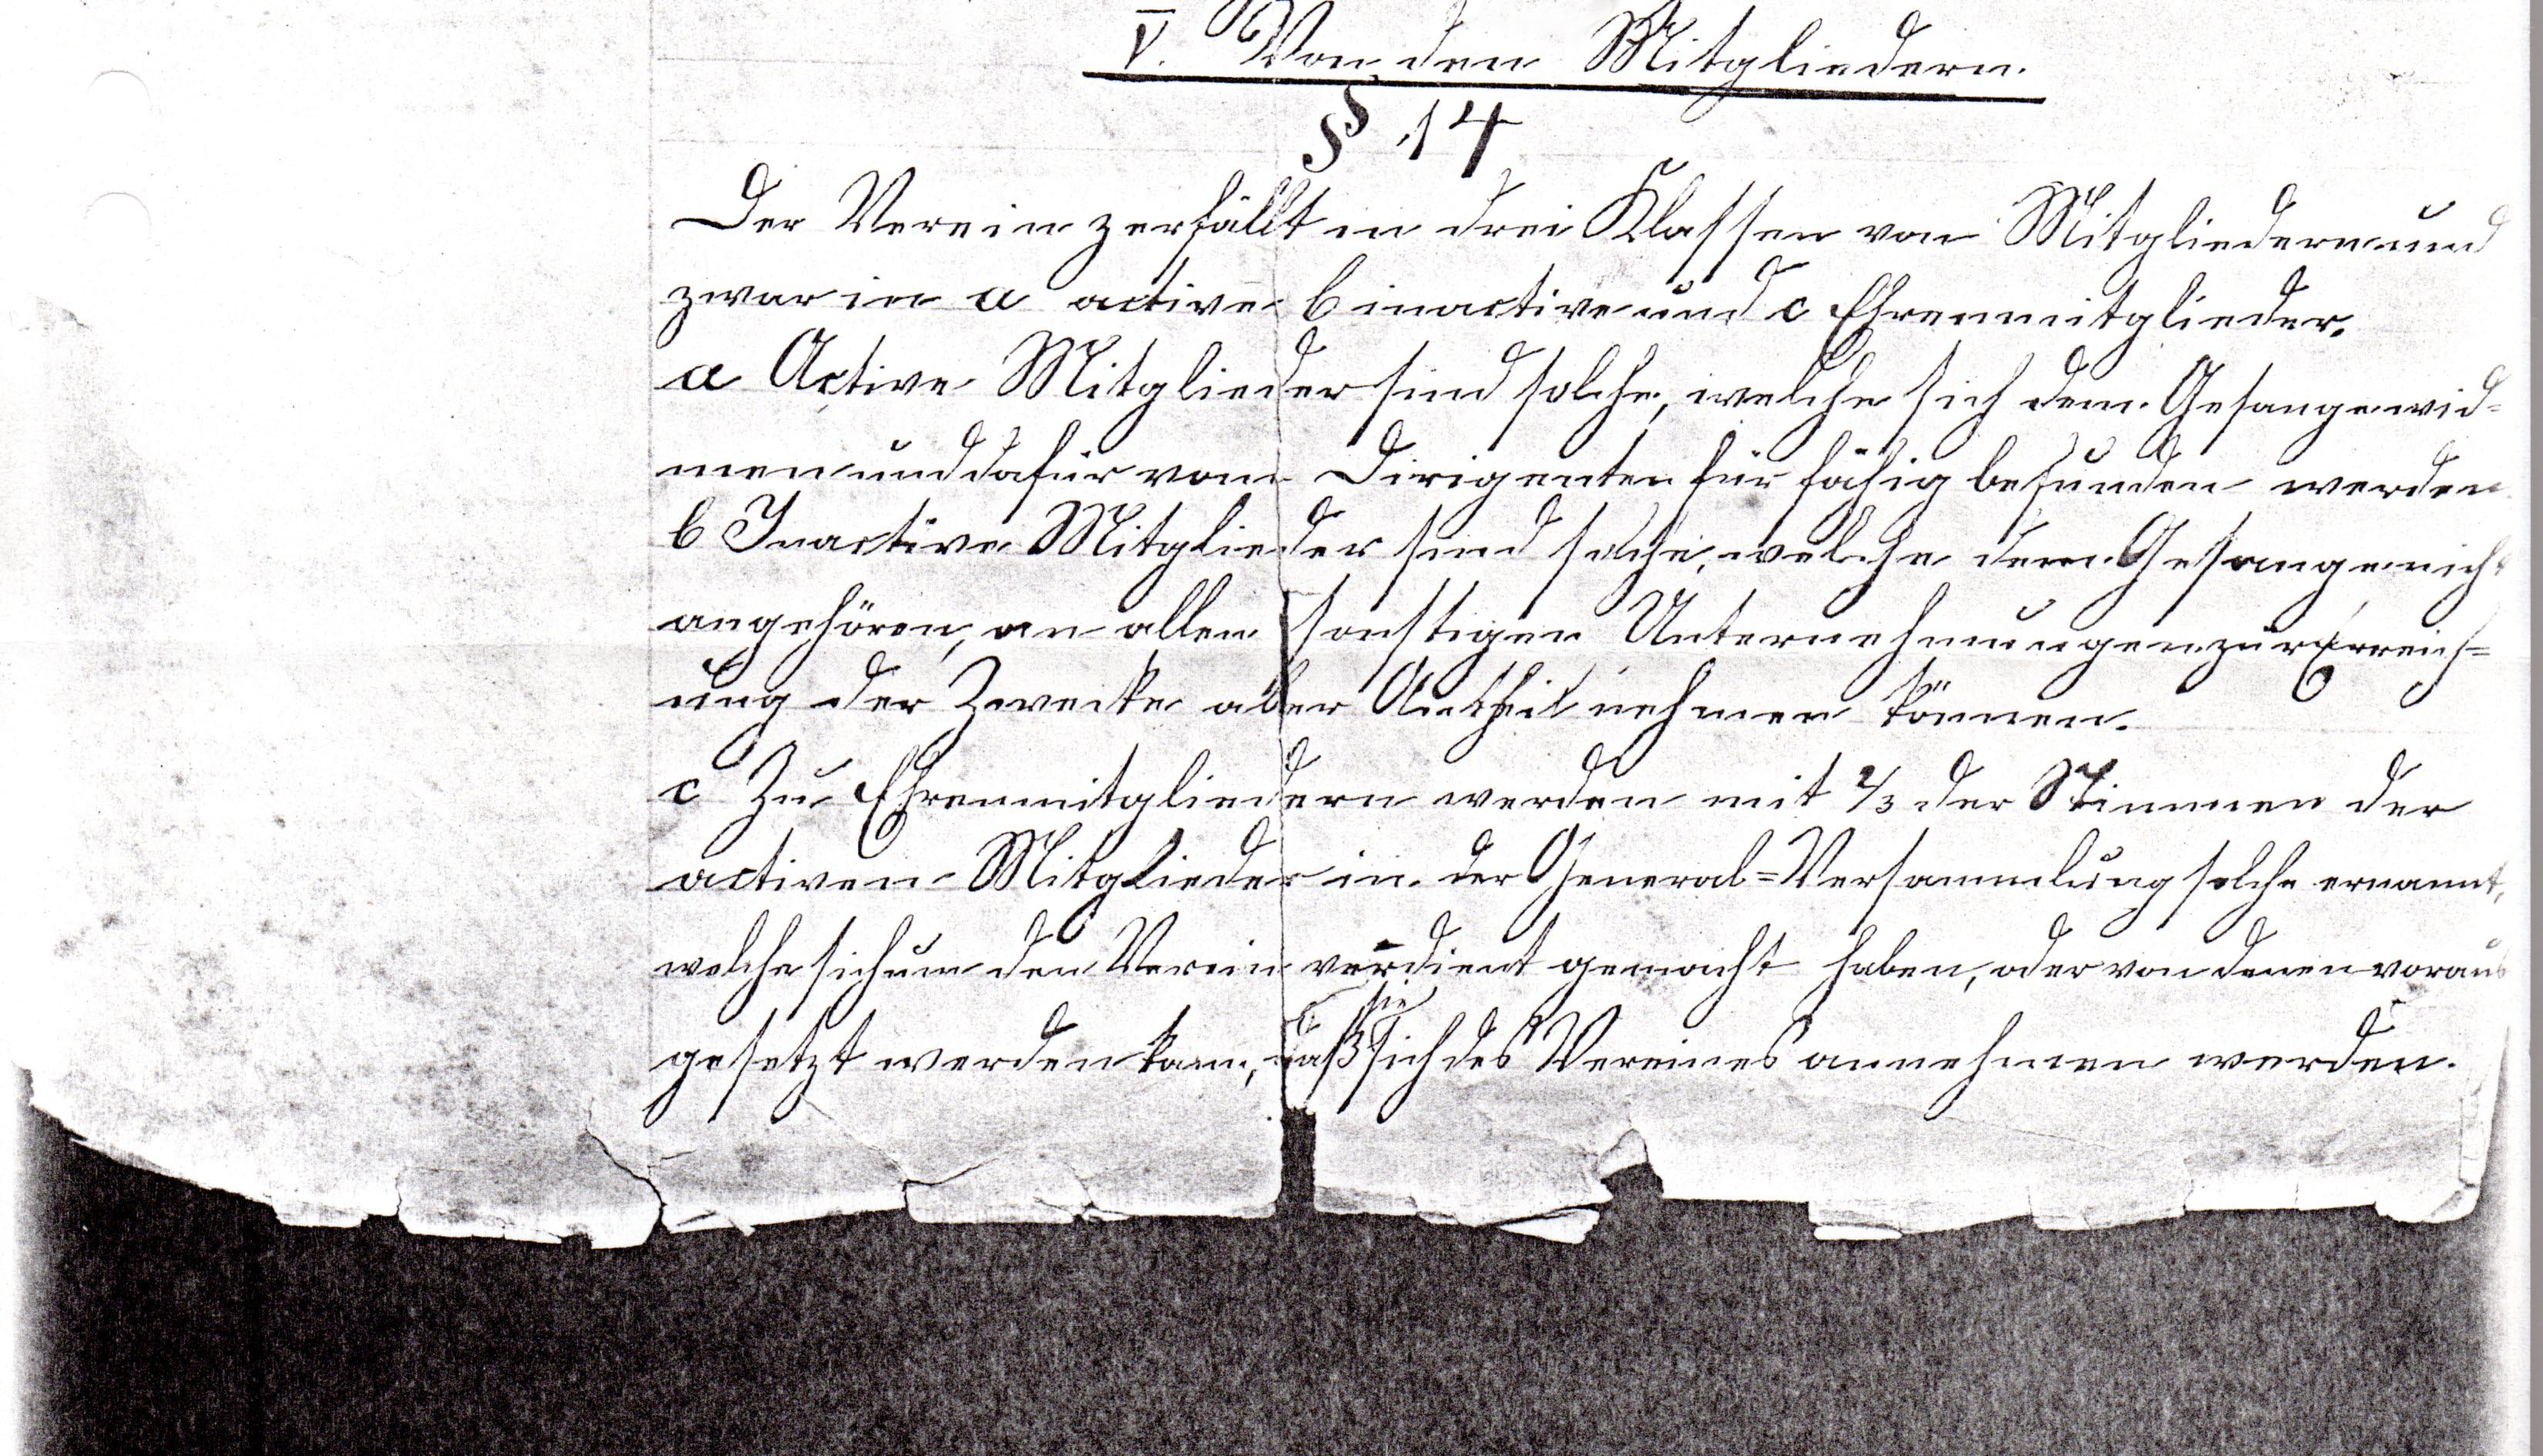 V. Von den Mitgliedern.
§ 14
Der Verein zerfällt in drei Klassen von Mitgliedern und
zwar in a active b inactive und c Ehrenmitglieder.
a Active Mitglieder sind solche, welche sich dem Gesange wid=
men und dafür vom Dirigenten für fähig befunden werden
b Inactive Mitglieder sind solche, welche dem Gesange nicht
angehören, an allen sonstigen Unternehmungen zur Erreich=
ung der Zwecke aber Antheil nehmen können.
c Zu Ehrenmitgliedern werden mit 2/3 der Stimmen der
activen Mitglieder in der General=Versammlung solche ernannt,
welche sich um den Verein verdient gemacht haben, oder von denen voraus
gesetzt werden kann, daß sie sich des Vereines annehmen werden.